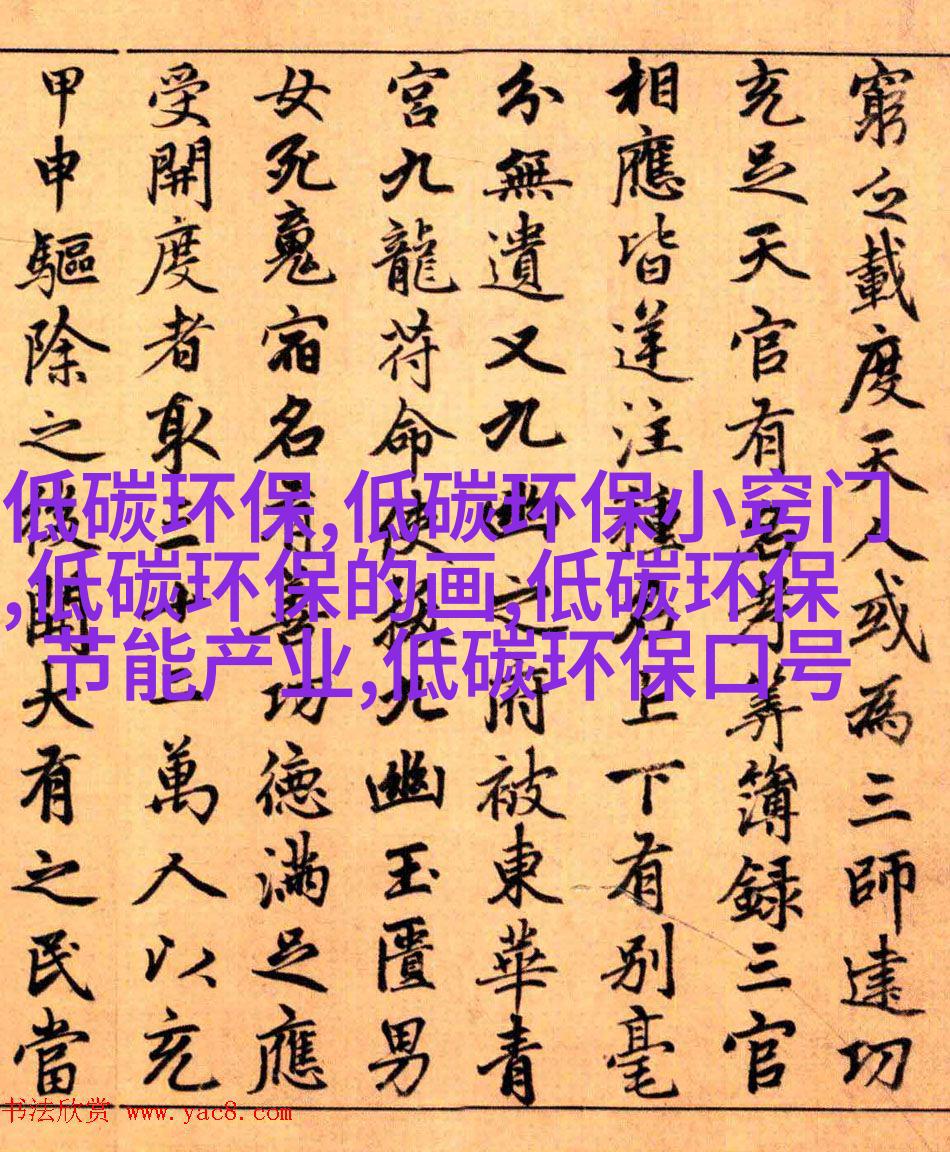 窮之載度天人或為三師建功
充足天官有考筭簿録三官
相應皆逆注種名上下有別毫
分無遺又九幽之府被東華青
宮九龍符命使拔九幽玉匱男
女死魂宿名有善功德滿足應
受開度者取三十二萬人以充
甲申驅除之後開大有之民當
低碳环保,低碳环保小窍门
,低碳环保的画,低碳环保
节能产业,低碳环保口号
书法欣赏 www.yac8.com